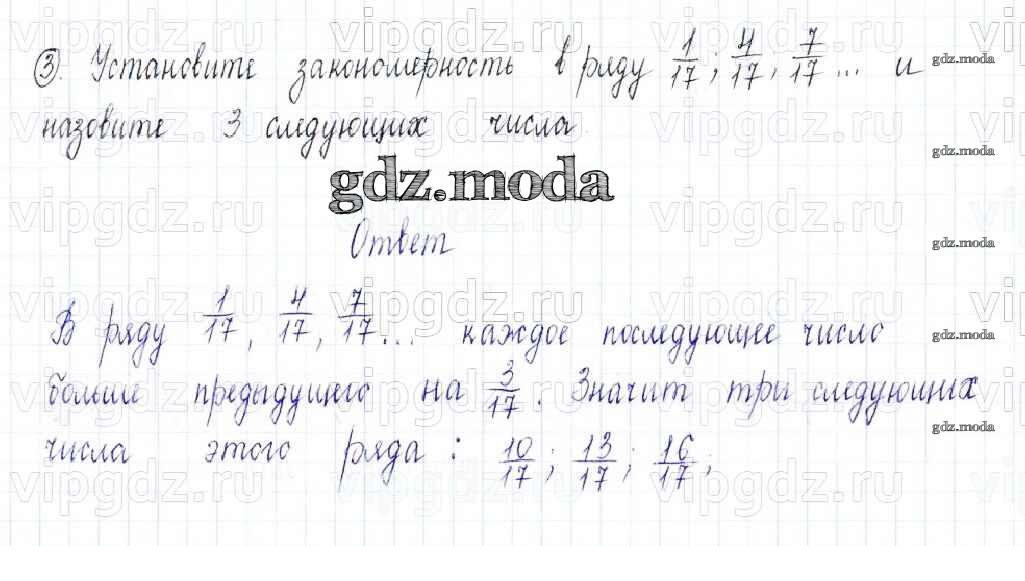 ③. Установите закономерность в ряду 1/17; 4/17; 7/17... и
назовите 3 следующих числа.
gdz.moda
Ответ
В ряду 1/17, 4/17, 7/17... каждое последующее число
больше предыдущего на 3/17. Значит три следующих
числа этого ряда: 10/17; 13/17; 16/17;